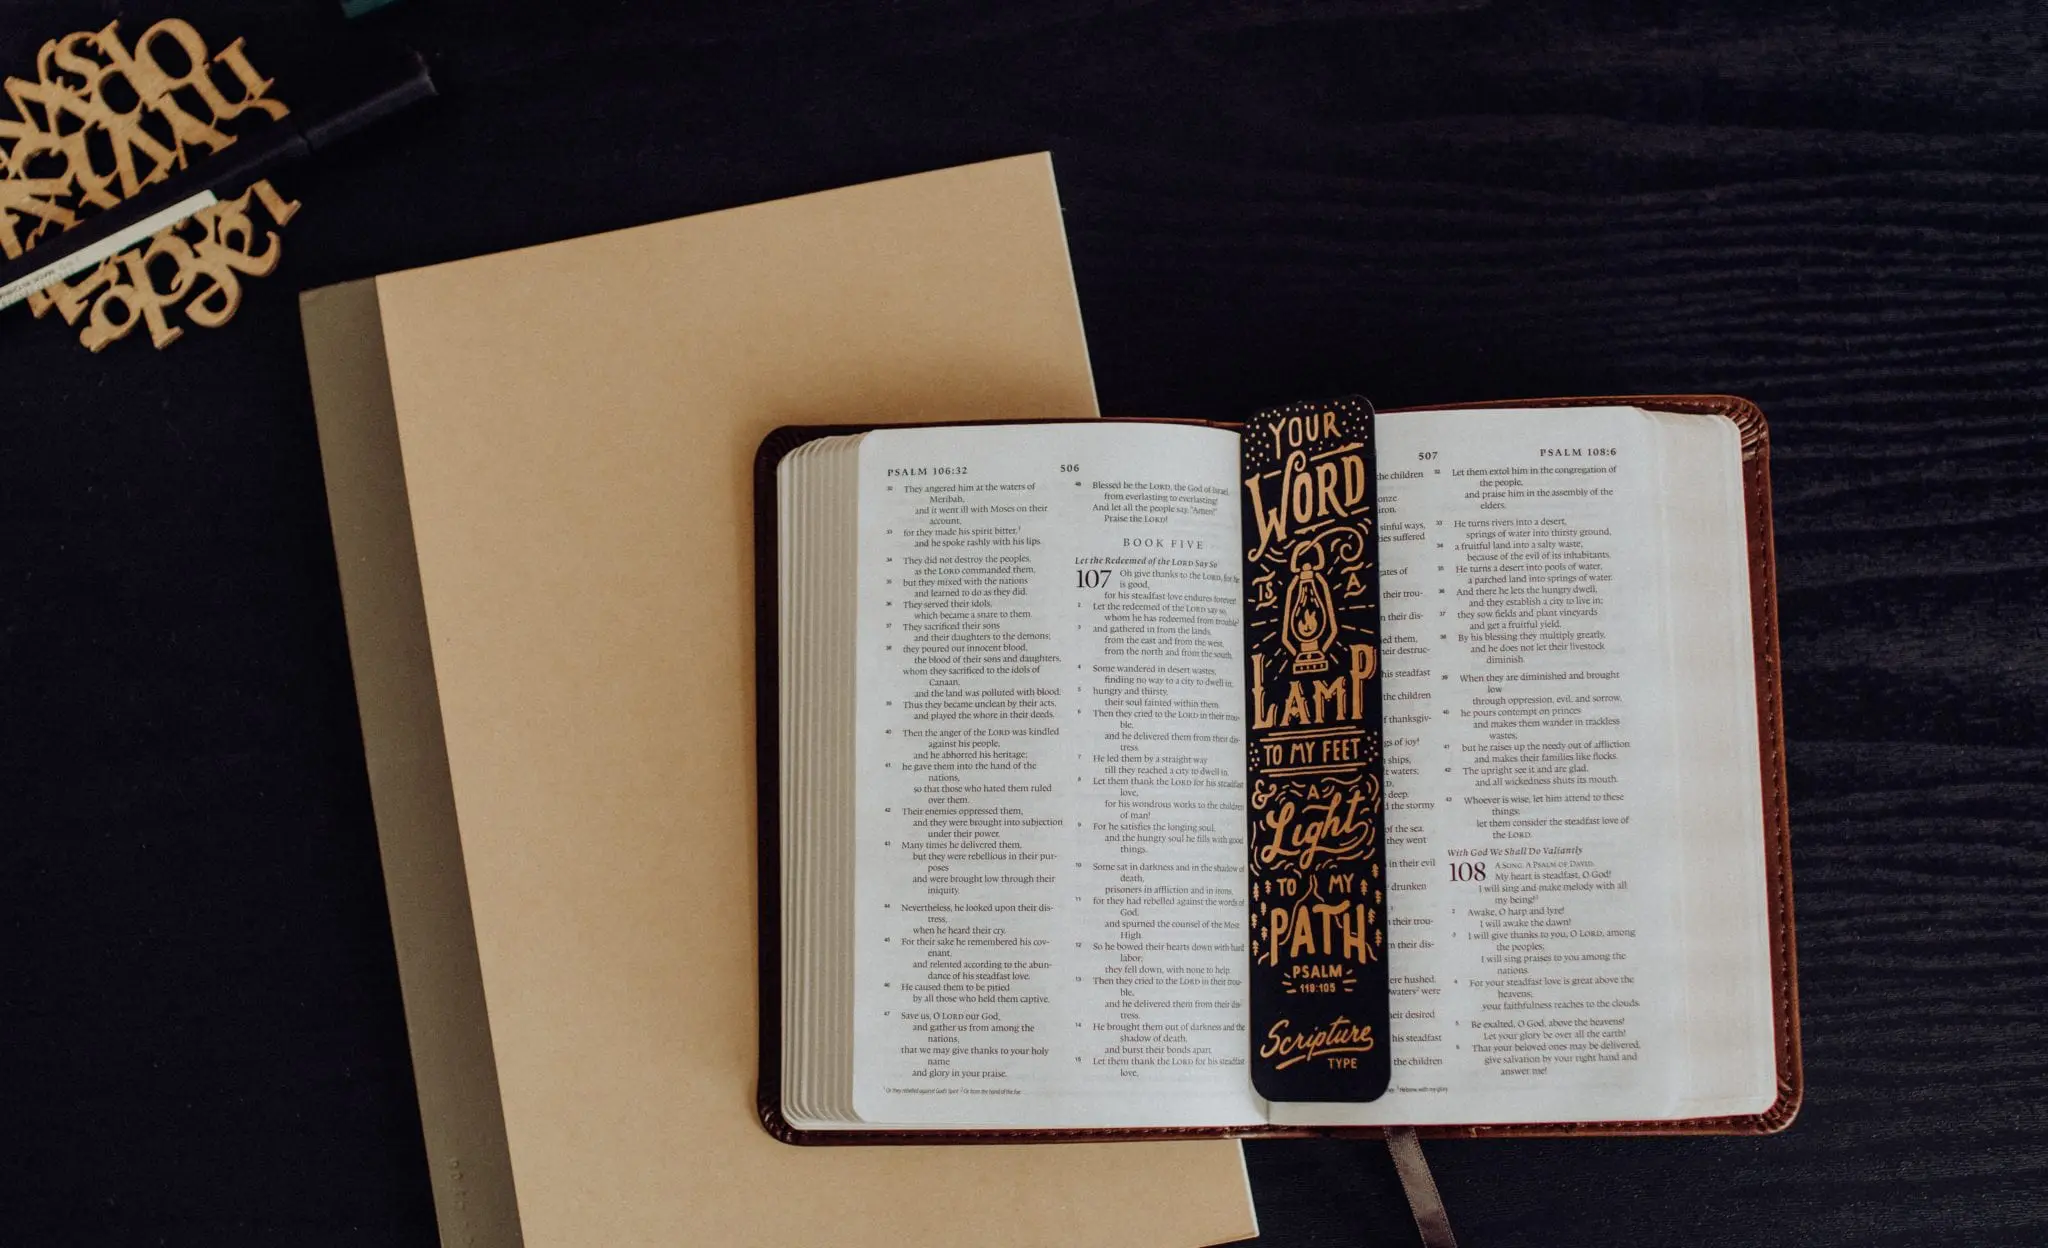 PSALM 106:32
506
32 They angered him at the waters of
Meribah,
and it went ill with Moses on their
account,
33 for they made his spirit bitter,1
and he spoke rashly with his lips.
34 They did not destroy the peoples,
as the LORD commanded them,
35 but they mixed with the nations
and learned to do as they did.
36 They served their idols,
which became a snare to them.
37 They sacrificed their sons
and their daughters to the demons;
38 they poured out innocent blood,
the blood of their sons and daughters,
whom they sacrificed to the idols of
Canaan,
and the land was polluted with blood.
39 Thus they became unclean by their acts,
and played the whore in their deeds.
40 Then the anger of the LORD was kindled
against his people,
and he abhorred his heritage;
41 he gave them into the hand of the
nations,
so that those who hated them ruled
over them.
42 Their enemies oppressed them,
and they were brought into subjection
under their power.
43 Many times he delivered them,
but they were rebellious in their pur-
poses
and were brought low through their
iniquity.
44 Nevertheless, he looked upon their dis-
tress,
when he heard their cry.
45 For their sake he remembered his cov-
enant,
and relented according to the abun-
dance of his steadfast love.
46 He caused them to be pitied
by all those who held them captive.
47 Save us, O LORD our God,
and gather us from among the
nations,
that we may give thanks to your holy
name
and glory in your praise.
1 Or they rebelled against God's Spirit 2 Or from the hand of the foe
48 Blessed be the LORD, the God of Israel,
from everlasting to everlasting!
And let all the people say, "Amen!"
Praise the LORD!
BOOK FIVE
Let the Redeemed of the LORD Say So
107 Oh give thanks to the LORD, for he
is good,
for his steadfast love endures forever!
2 Let the redeemed of the LORD say so,
whom he has redeemed from trouble2
3 and gathered in from the lands,
from the east and from the west,
from the north and from the south.
4 Some wandered in desert wastes,
finding no way to a city to dwell in;
5 hungry and thirsty,
their soul fainted within them.
6 Then they cried to the LORD in their trou-
ble,
and he delivered them from their dis-
tress.
7 He led them by a straight way
till they reached a city to dwell in.
8 Let them thank the LORD for his steadfast
love,
for his wondrous works to the children
of man!
9 For he satisfies the longing soul,
and the hungry soul he fills with good
things.
10 Some sat in darkness and in the shadow of
death,
prisoners in affliction and in irons,
11 for they had rebelled against the words of
God,
and spurned the counsel of the Most
High.
12 So he bowed their hearts down with hard
labor;
they fell down, with none to help.
13 Then they cried to the LORD in their trou-
ble,
and he delivered them from their dis-
tress.
14 He brought them out of darkness and the
shadow of death,
and burst their bonds apart.
15 Let them thank the LORD for his steadfast
love,
YOUR
WORD
IS A
LAMP
TO MY FEET
& A
Light
TO MY
PATH
PSALM
119:105
Scripture
TYPE
507
PSALM 108:6
the children
onze
iron.
sinful ways,
suffered
gates of
their trou-
their dis-
them,
their destruc-
his steadfast
the children
thanksgiv-
of joy!
ships,
waters;
deep.
the stormy
of the sea.
they went
in their evil
drunken
their trou-
their dis-
were hushed.
waters2 were
their desired
his steadfast
the children
Hebrew with my glory
32 Let them extol him in the congregation of
the people,
and praise him in the assembly of the
elders.
33 He turns rivers into a desert,
springs of water into thirsty ground,
34 a fruitful land into a salty waste,
because of the evil of its inhabitants.
35 He turns a desert into pools of water,
a parched land into springs of water.
36 And there he lets the hungry dwell,
and they establish a city to live in;
37 they sow fields and plant vineyards
and get a fruitful yield.
38 By his blessing they multiply greatly,
and he does not let their livestock
diminish.
39 When they are diminished and brought
low
through oppression, evil, and sorrow,
40 he pours contempt on princes
and makes them wander in trackless
wastes;
41 but he raises up the needy out of affliction
and makes their families like flocks.
42 The upright see it and are glad,
and all wickedness shuts its mouth.
43 Whoever is wise, let him attend to these
things;
let them consider the steadfast love of
the LORD.
With God We Shall Do Valiantly
108 A SONG. A PSALM OF DAVID.
My heart is steadfast, O God!
I will sing and make melody with all
my being!3
2 Awake, O harp and lyre!
I will awake the dawn!
3 I will give thanks to you, O LORD, among
the peoples;
I will sing praises to you among the
nations.
4 For your steadfast love is great above the
heavens;
your faithfulness reaches to the clouds.
5 Be exalted, O God, above the heavens!
Let your glory be over all the earth!
6 That your beloved ones may be delivered,
give salvation by your right hand and
answer me!